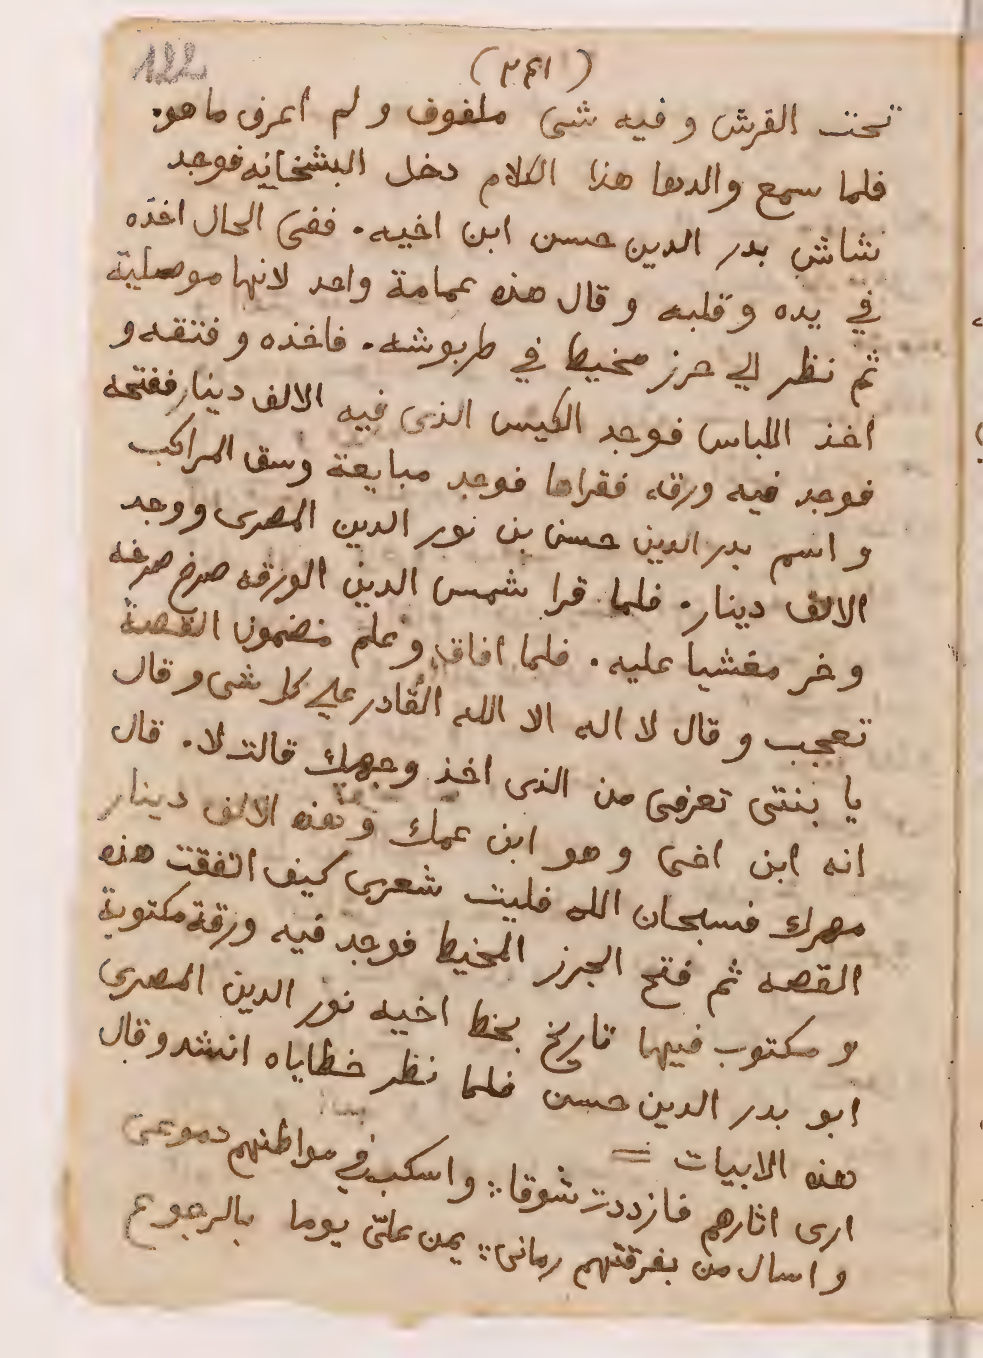 122
(٢٤١)
تحت الفرش و فيه شى ملفوف و لم اعرف ما هو.
فلما سمع والدها هذا الكلام دخل البشخانيه فوجد
شاش بدر الدين حسن ابن اخيه. ففى الحال اخذه
في يده و قلبه و قال هذه عمامة واحد لانها موصلية
ثم نظر الي حرز مخيط في طربوشه. فاخذه و فتقه و
اخذ اللباس فوجد الكيس الذى فيه الالف دينار ففتحه
فوجد فيه ورقه فقراها فوجد مبايعة وسق المراكب
و اسم بدر الدين حسن بن نور الدين المصرى ووجد
الالف دينار. فلما قرا شمس الدين الورقه صرخ صرخه
و خر مغشيا عليه. فلما افاق و علم مضمون القصة
تعجب و قال لا اله الا الله القادر على كل شى و قال
يا بنتى تعرفى من الذى اخذ وجهك قالت لا. قال
انه ابن اخى و هو ابن عمك و هذه الالف دينار
مهرك فسبحان الله فليت شعرى كيف اتفقت هذه
القصه ثم فتح الحرز المخيط فوجد فيه ورقة مكتوبة
و مكتوب فيها تاريخ بخط اخيه نور الدين المصرى
ابو بدر الدين حسن فلما نظر خطاياه انشد وقال
هذه الابيات =
ارى اثارهم فازددت شوقا :: واسكب في مواطنهم دموعى
و اسال من بفرقتهم رمانى :: يمن علىّ يوما بالرجوع